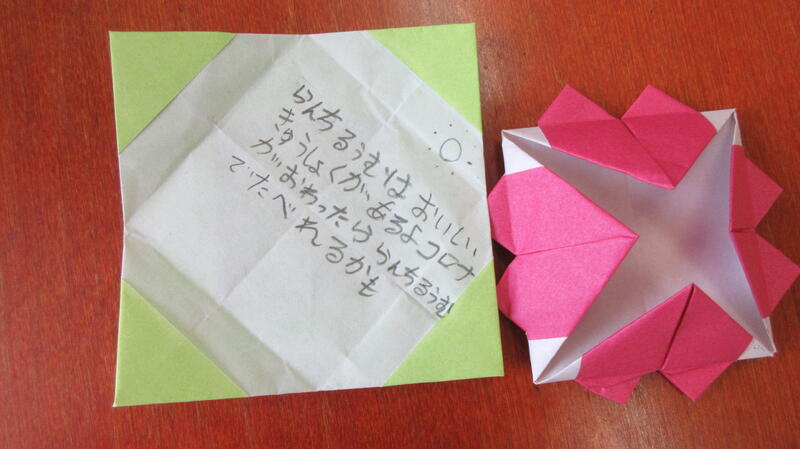 らんちるうむは おいしい
きゅうしょくが あるよ コロナ
が おわったら らんちるうむ
で たべれるかも